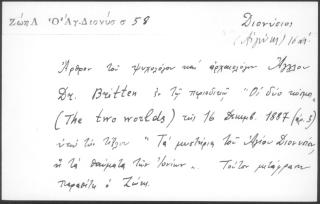 Ζώης Λ Ὁ Ἅγ. Διονύσ σ 58
Διονύσιος
(Αἰγίνης) 16 αἰ.
Ἄρθρον τοῦ ψυχολόγου καὶ ἀρχαιολόγου Ἄγγλου
Dr. Britten ἐν τῇ περιοδικῇ "Οἱ δύο κόσμοι
(The two worlds) τῆς 16 Δεκεμβ. 1887 (ἀρ. 5)
ὑπὸ τὸν τίτλον "Τὰ μυστήρια τοῦ Ἁγίου Διονυσίου
ἢ τὰ θαύματα τῶν Ἰονίων". Τοῦτον μετάφρασιν
παραθέτει ὁ Ζώης.